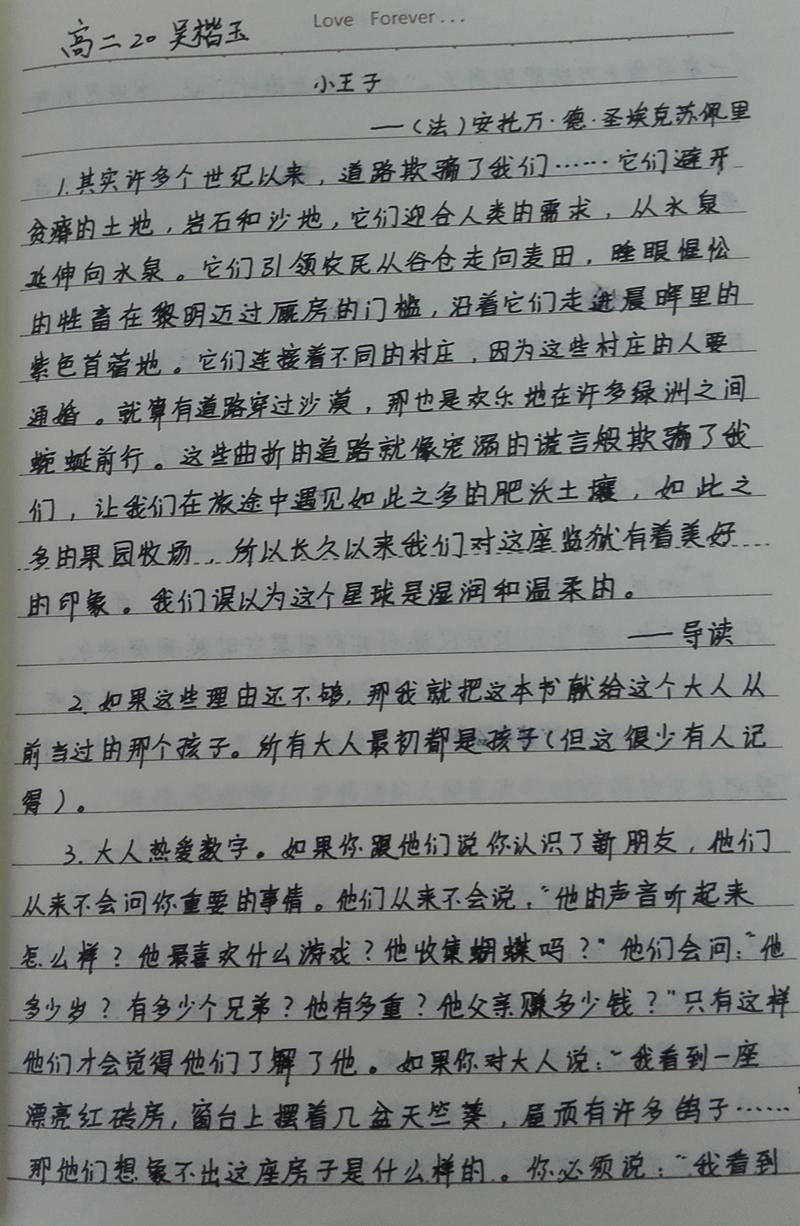 Love Forever...
高二20 吴楷玉
小王子
——(法)安托万·德·圣埃克苏佩里
1.其实许多个世纪以来，道路欺骗了我们……它们避开
贫瘠的土地，岩石和沙地，它们迎合人类的需求，从水泉
延伸向水泉。它们引领农民从谷仓走向麦田，睡眼惺忪
的牲畜在黎明迈过厩房的门槛，沿着它们走进晨晖里的
紫色苜蓿地。它们连接着不同的村庄，因为这些村庄的人要
通婚。就算有道路穿过沙漠，那也是欢乐地在许多绿洲之间
蜿蜒前行。这些曲折的道路就像宠溺的谎言般欺骗了我
们，让我们在旅途中遇见如此之多的肥沃土壤，如此之
多的果园牧场，所以长久以来我们对这座监狱有着美好
的印象。我们误以为这个星球是湿润和温柔的。
——导读
2.如果这些理由还不够，那我就把这本书献给这个大人从
前当过的那个孩子。所有大人最初都是孩子(但这很少有人记
得)。
3.大人热爱数字。如果你跟他们说你认识了新朋友，他们
从来不会问你重要的事情。他们从来不会说："他的声音听起来
怎么样？他最喜欢什么游戏？他收集蝴蝶吗？"他们会问："他
多少岁？有多少个兄弟？他有多重？他父亲赚多少钱？"只有这样
他们才会觉得他们了解了他。如果你对大人说："我看到一座
漂亮红砖房，窗台上摆着几盆天竺葵，屋顶有许多鸽子……
那他们想象不出这座房子是什么样的。你必须说："我看到